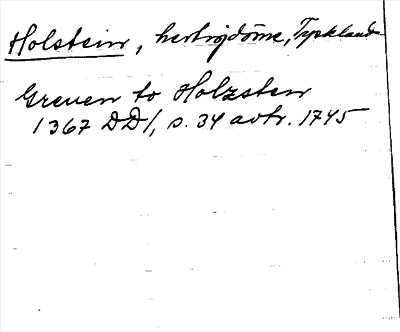 Holstein, hertigdöme, Tyskland
Greven to Holzsten
1367 DD1, s. 34 avtr. 1745